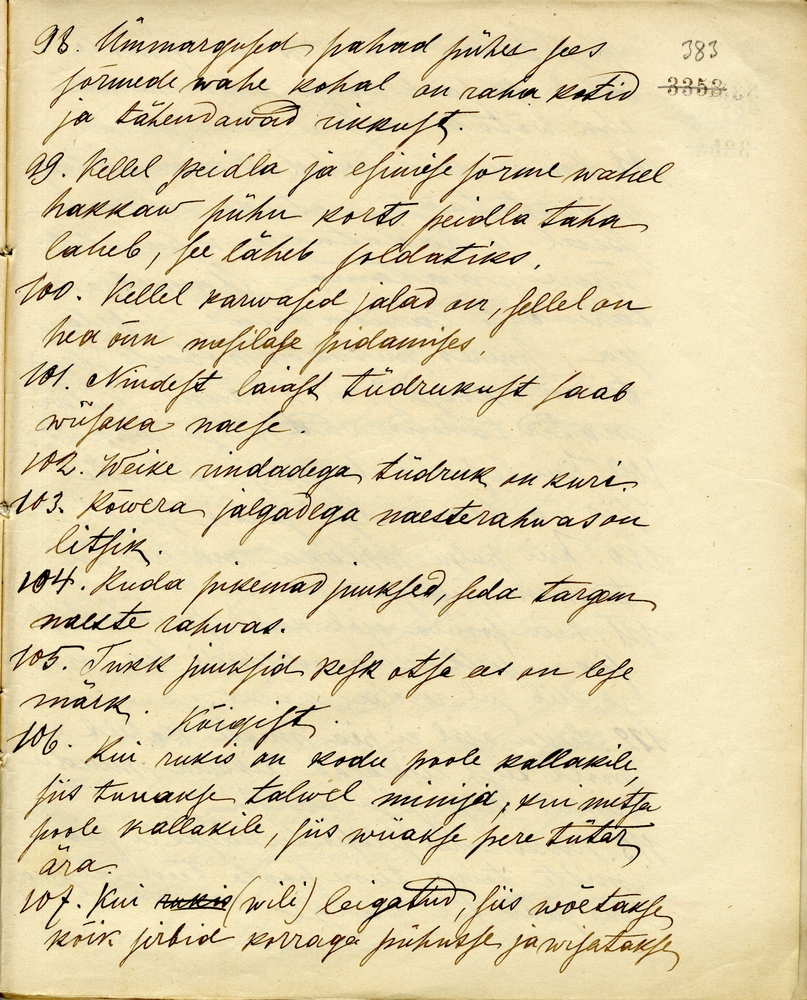 98. Ümmargused pahad pühu sees
383
sõrmede wahe kohal on raha kotid
3353
ja tähendawad rikkust.
99. Kellel peidla ja esimese sõrme wahel
hakkaw pühu korts peidla taha
laheb, see läheb soldatiks.
100. Kellel karwased jalad on, sellel on
hea õnn mesilase pidamises.
101. Nindest laiast tüdrukust saab
wiisaka naese.
102. Weike rindadega tüdruk on kuri.
103. Kõwera jalgadega naesterahwas on
litsik.
104. Kuda pikemad juuksed, seda targem
naeste rahwas.
105. Tukk juuksid kesk otsa ees on lese
märk.
Kõigist.
106. Kui rukis on kodu poole kallakile,
siis tuuakse talwel minija, kui metsa
poole kallakile, siis wiiakse pere tütar
ära.
107. Kui rukis (wili) leigatud, siis wõetakse
kõik sirbid korraga pühusse ja wisatakse